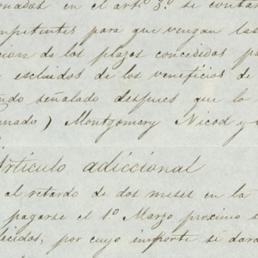 onadas en el artº 3º se contar
mpetentes para que vengan las
cion de los plazos concedidos pa
escluidos de los veneficios de
ndo señalado despues que lo
mado) Montgomery Nicod y
Articulo adiccional
el retardo de dos meses en la
pagarse el 1º Marzo procsimo s
lecidas, por cuyo importe si dara